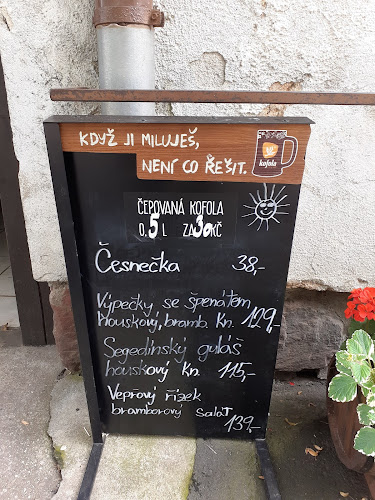 KDYŽ JI MILUJEŠ,
NENÍ CO ŘEŠIT.
kofola
ČEPOVANÁ KOFOLA
0,5 L ZA 30 KČ
Česnečka 38,-
Výpečky se špenátem
houskový, bramb. kn. 129,-
Segedínský guláš
houskový kn. 115,-
Vepřový řízek
bramborový salát
139,-